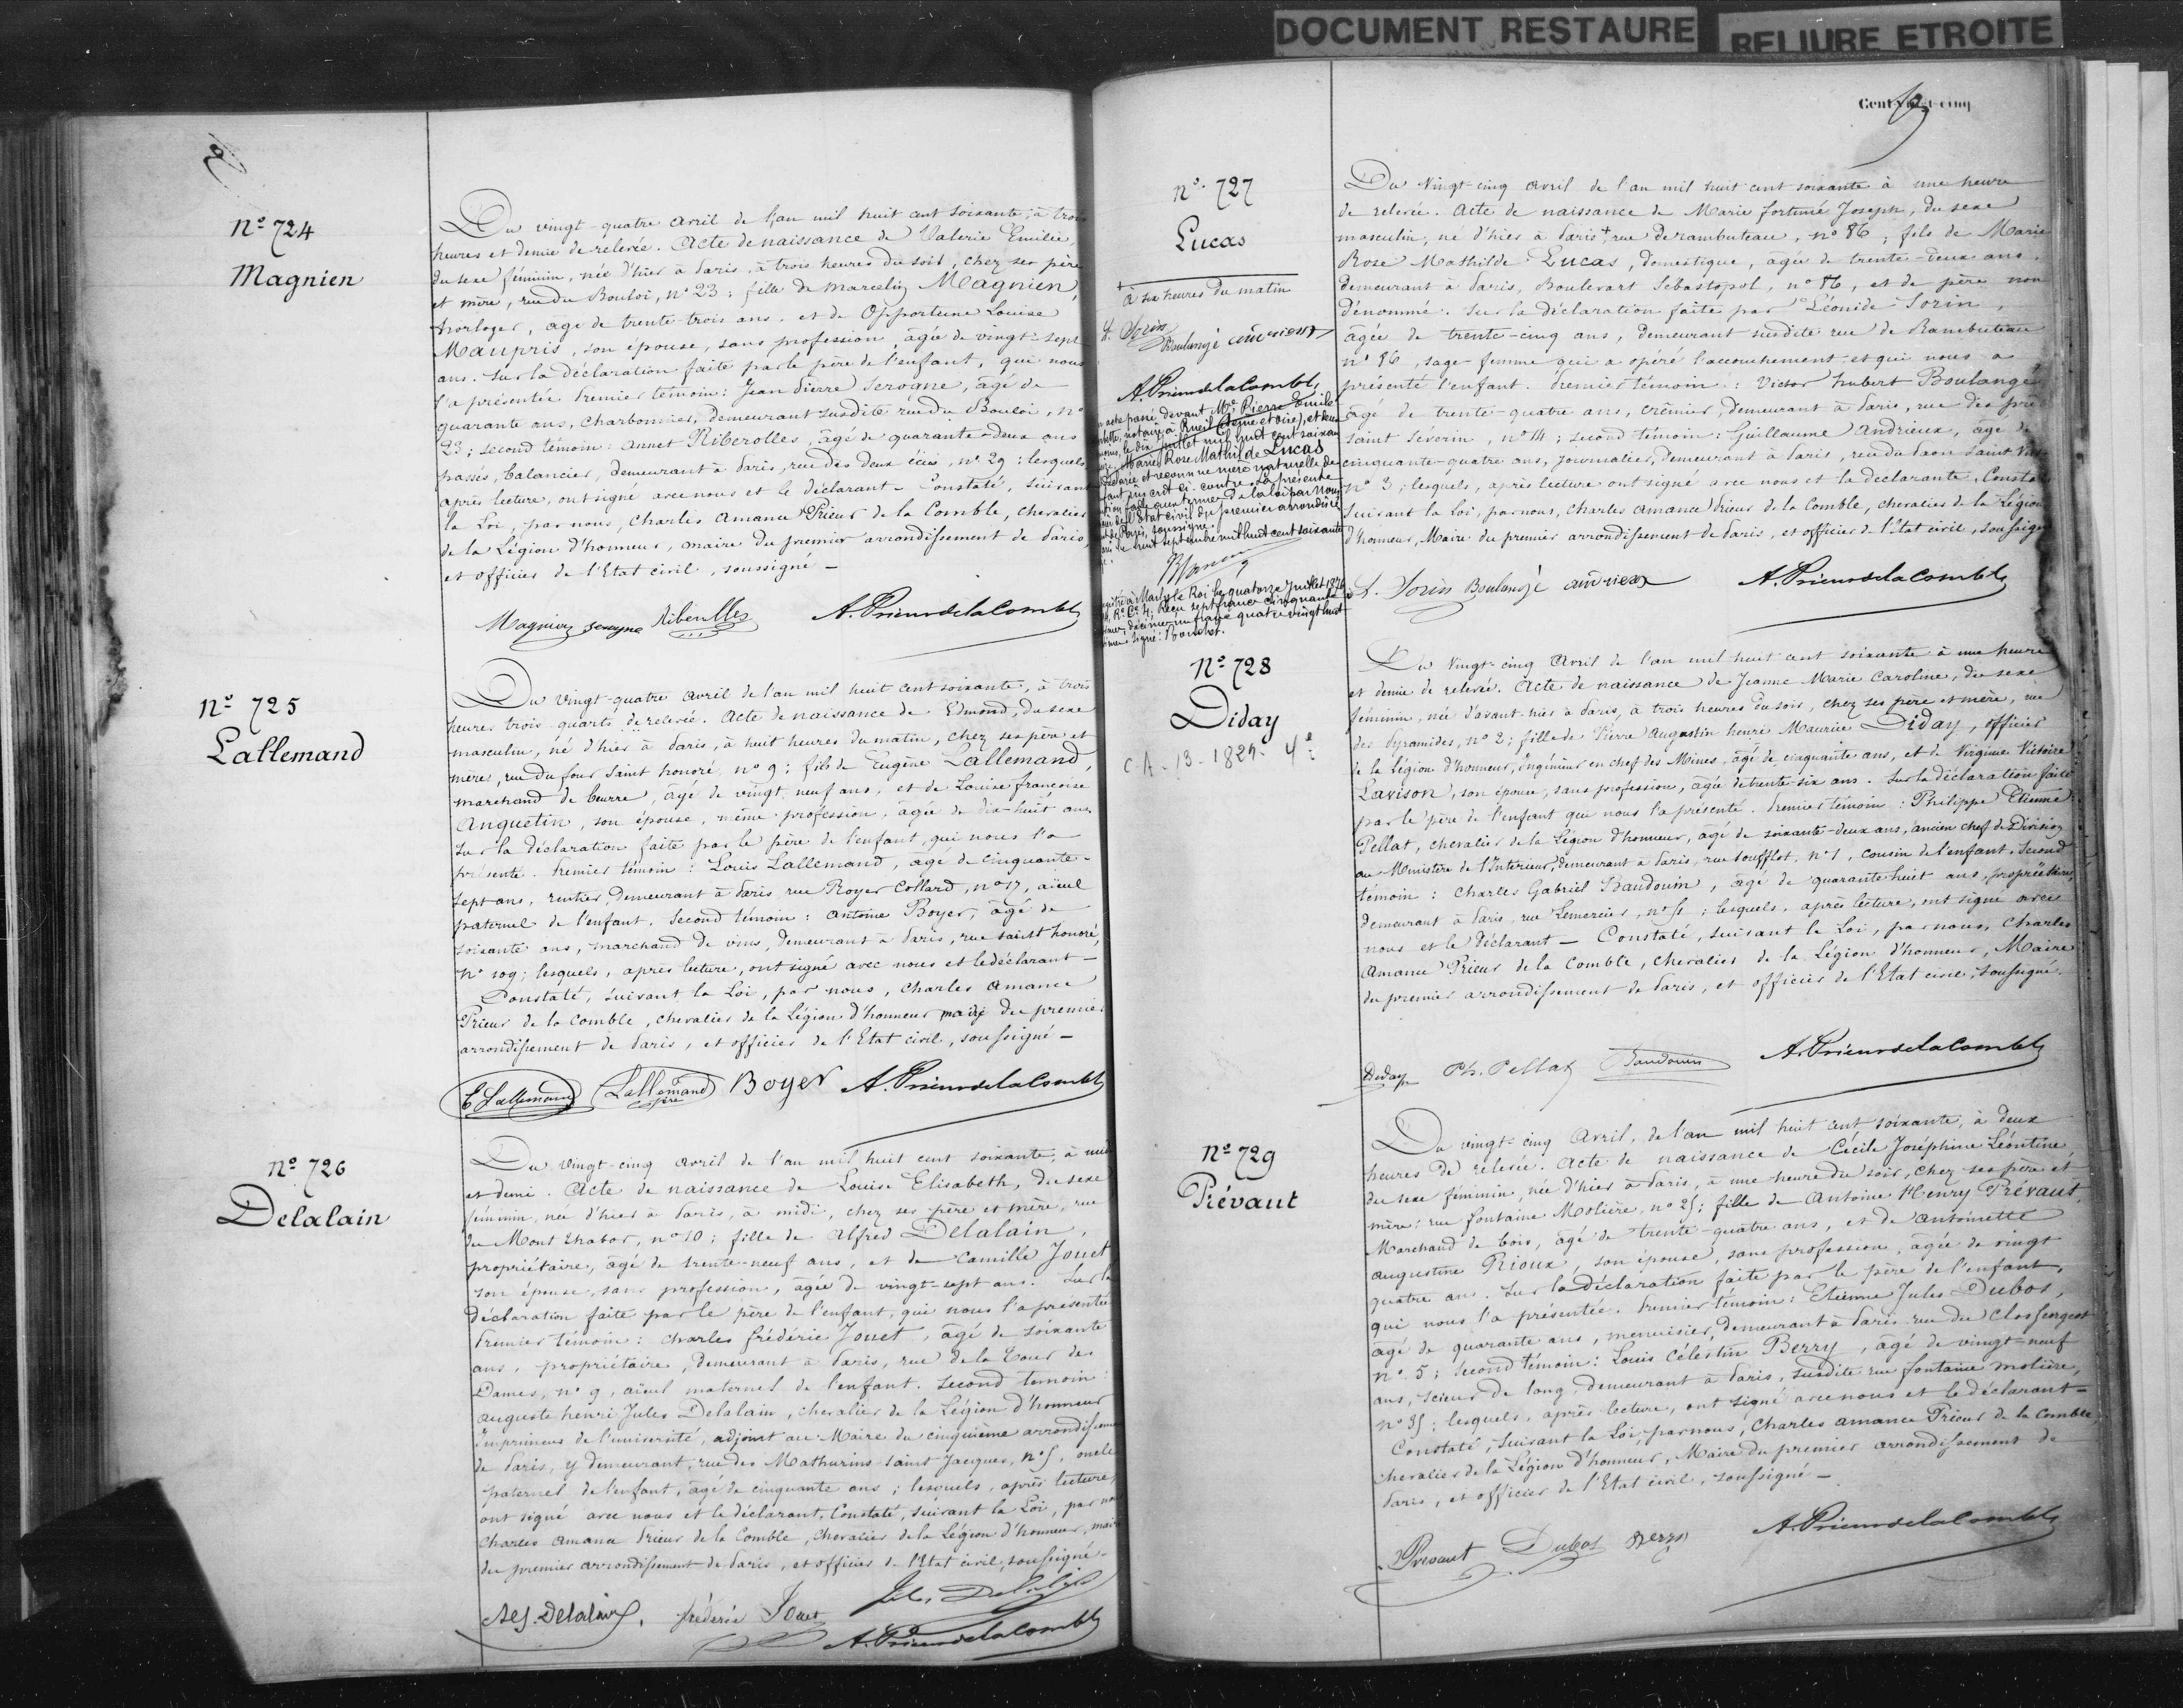 DOCUMENT RESTAURE
RELIURE ETROITE
Nº 724
Magnien
Du vingt-quatre avril de l'an mil huit cent soixante, à trois
heures et demie de relevée. Acte de naissance de Valerie Emilie,
du sexe féminin, née d'hier à Paris, à trois heures du soir, chez ses père
et mère, rue du Bouloi, nº 23; fille de Marcelin Magnien,
horloger, âgé de trente-trois ans, et de Opportune Louise
Maupris, son épouse, sans profession, âgée de vingt-sept
ans. Sur la déclaration faite par le père de l'enfant, qui nous
l'a présentée. Premier témoin: Jean Pierre Serogne, âgé de
quarante ans, charbonnier, demeurant susdite rue du Bouloi, nº
23; second témoin: annet Riberolles, âgé de quarante-deux ans
passés, balancier, demeurant à Paris, rue des deux écus, nº 29: lesquels
après lecture, ont signé avec nous et le déclarant - Constaté, suivant
la Loi, par nous, Charles Amance Prieur de la Comble, chevalier
de la Légion d'honneur, maire du premier arrondissement de Paris,
et officier de l'Etat civil, soussigné -
Magnien Serogne Riberolles A. Prieur de la Comble
Nº 725
Lallemand
Du Vingt-quatre avril de l'an mil huit cent soixante, à trois
heures trois quarts de relevée. Acte de naissance de Edmond, du sexe
masculin, né d'hier à Paris, à huit heures du matin, chez ses père et
mère, rue du four Saint honoré, nº 9; fils de Eugène Lallemand,
marchand de beurre, âgé de vingt neuf ans, et de Louise françoise
Anquetin, son épouse, même profession, âgée de dix-huit ans
Sur la déclaration faite par le père de l'enfant, qui nous l'a
présenté. Premier témoin: Louis Lallemand, âgé de cinquante-
sept ans, rentier, demeurant à Paris rue Royer Collard, nº 17, aïeul
paternel de l'enfant. Second témoin: antoine Boyer, âgé de
soixante ans, marchand de vins, demeurant à Paris, rue saint honoré,
Nº 109; lesquels, après lecture, ont signé avec nous et le déclarant -
Constaté, suivant la Loi, par nous, Charles Amance
Prieur de la Comble, chevalier de la Légion d'honneur maire du premier
arrondissement de Paris, et officier de l'Etat civil, soussigné -
E Lallemand Lallemand père Boyer A. Prieur de la Comble
Nº 726
Delalain
Du Vingt-cinq avril de l'an mil huit cent soixante, à midi
et demi. Acte de naissance de Louise Elisabeth, du sexe
féminin, née d'hier à Paris, à midi, chez ses père et mère, rue
du Mont thabor, nº 10: fille de Alfred Delalain,
propriétaire, âgé de trente-neuf ans, et de Camille Jouet
son épouse, sans profession, âgée de vingt-sept ans. Sur la
déclaration faite par le père de l'enfant, qui nous l'a présentée
Premier témoin: charles frédéric Jouet, âgé de soixante
ans, propriétaire, demeurant à Paris, rue de la Tour des
Dames, nº 9, aïeul maternel de l'enfant. Second témoin:
auguste henri Jules Delalain, chevalier de la Légion d'honneur
imprimeur de l'université, adjoint au Maire du cinquième arrondissement
de Paris, y demeurant, rue des Mathurins Saint Jacques, nº 5, oncle
paternel de l'enfant, âgé de cinquante ans; lesquels, après lecture,
ont signé avec nous et le déclarant. Constaté, suivant la Loi, par nous
Charles amance Prieur de la Comble, chevalier de la Légion d'honneur, maire
du premier arrondissement de Paris, et officier de l'Etat civil, soussigné -
Alf. Delalain. frédéric Jouet Jules Delalain
A. Prieur de la Comble
Cent vingt-cinq
nº 727
Lucas
à six heures du matin
L. Sorin
Boulangé andrieux
A. Prieur de la Comble
acte passé devant Me Pierre Emile
notaire à Rueil (Seine et oise), et
le dix juillet mil huit cent soixan
Marie Rose Mathilde Lucas
déclarée et reconnue mère naturelle de
inscrit ci-contre. La présente
faite aux termes de la loi par nous
de l'état civil du premier arrondisse
de Paris, soussigné.
huit septembre mil huit cent soixante
à Marly le Roi le quatorze Juillet 1876
Reçu sept francs cinquante
décimes un franc quatre vingt huit
signé:
Du Vingt-cinq avril de l'an mil huit cent soixante à une heure
de relevée. Acte de naissance de Marie fortuné Joseph, du sexe
masculin, né d'hier à Paris +, rue de rambuteau, nº 86; fils de Marie
Rose Mathilde Lucas, domestique, âgée de trente-deux ans,
demeurant à Paris, Boulevart Sébastopol, nº 86, et de père non
dénommé. Sur la déclaration faite par Léonide Sorin,
âgée de trente-cinq ans, demeurant susdite rue de Rambuteau
nº 86, sage-femme qui a opéré l'accouchement et qui nous a
présenté l'enfant. Premier témoin: Victor hubert Boulangé
âgé de trente-quatre ans, crêmier, demeurant à Paris, rue des prêt
saint Severin, nº 14; second témoin: Guillaume Andrieux, âgé de
cinquante-quatre ans, journalier, demeurant à Paris, rue du Paon Saint Vic
nº 3; lesquels, après lecture ont signé avec nous et la déclarante. Constaté
suivant la Loi, par nous, Charles amance Prieur de la Comble, chevalier de la Légion
d'honneur, Maire du premier arrondissement de Paris, et officier de l'Etat civil, soussigné
L. Sorin Boulangé andrieux A. Prieur de la Comble
Nº 728
Diday
C. A. 13. 1827. 4º
Du Vingt-cinq Avril de l'an mil huit cent soixante à une heure
et demie de relevée. Acte de naissance de Jeanne Marie Caroline, du sexe
féminin, née d'avant-hier à Paris, à trois heures du soir, chez ses père et mère, rue
des Pyramides, nº 2; fille de Pierre Augustin henri Maurice Diday, officier
de la Légion d'honneur, ingénieur en chef des Mines, âgé de cinquante ans, et de Virginie Victoire
Lavison, son épouse, sans profession, âgée de trente-six ans. Sur la déclaration faite
par le père de l'enfant qui nous l'a présenté. Premier témoin: Philippe Etienne
Pellat, chevalier de la Légion d'honneur, âgé de soixante-deux ans, ancien chef de Division
au Ministère de l'Intérieur, demeurant à Paris, rue Soufflot, nº 1, cousin de l'enfant. Second
témoin: Charles Gabriel Baudouin, âgé de quarante huit ans, propriétaire,
demeurant à Paris, rue Lemercier, nº 51; lesquels, après lecture, ont signé avec
nous et le déclarant - Constaté, suivant la Loi, par nous, Charles
Amance Prieur de la Comble, chevalier de la Légion d'honneur, Maire
du premier arrondissement de Paris, et officier de l'Etat civil, soussigné.
Diday Ph. Pellat Baudouin A. Prieur de la Comble
Nº 729
Prévaut
Du vingt-cinq Avril, de l'an mil huit cent soixante, à deux
heures de relevée. Acte de naissance de Cécile Joséphine Léontine,
du sexe féminin, née d'hier à Paris, à une heure du soir, chez ses père et
mère: rue fontaine Molière, nº 25; fille de Antoine Henry Prévaut,
Marchand de bois, âgé de trente-quatre ans, et de Antoinette
augustine Rioux, son épouse, sans profession, âgée de vingt
quatre ans. Sur la déclaration faite par le père de l'enfant,
qui nous l'a présentée. Premier témoin: Etienne Jules Dubos,
âgé de quarante ans, menuisier, demeurant à Paris rue du Clos Georgeot
nº 5; second témoin: Louis Célestin Berry, âgé de vingt-neuf
ans, scieur de long, demeurant à Paris, susdite rue fontaine molière,
nº 35; lesquels, après lecture, ont signé avec nous et le déclarant -
Constaté, suivant la Loi, par nous, Charles amance Prieur de la Comble
chevalier de la Légion d'honneur, Maire du premier arrondissement de
Paris, et officier de l'Etat civil, soussigné -
Prevaut Dubos Berry A. Prieur de la Comble